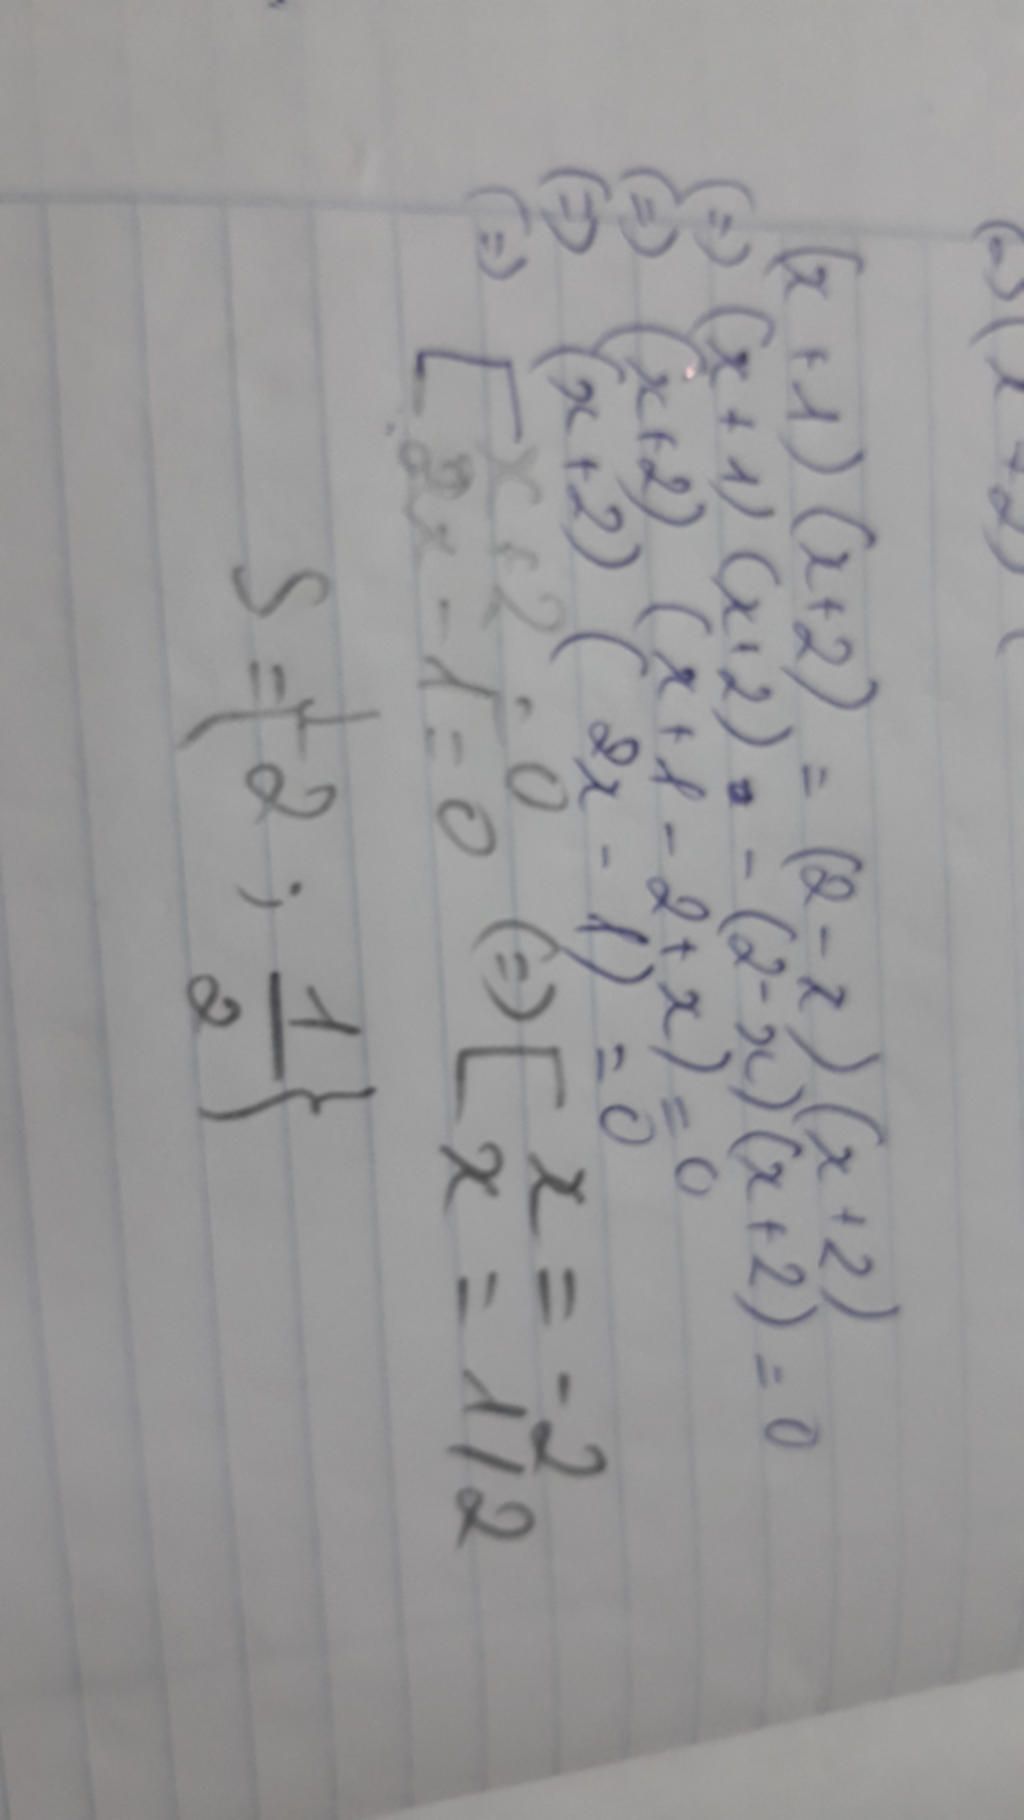 (=) (x+2) (
(x+1)(x+2) = (2-x)(x+2)
(=) (x+1)(x+2) - (2-x)(x+2) = 0
(=) (x+2) (x+1-2+x) = 0
(=) (x+2) (2x-1) = 0
(=) [ x+2=0
2x-1=0 (=) [ x = -2
x = 1/2
S = {-2; 1/2}